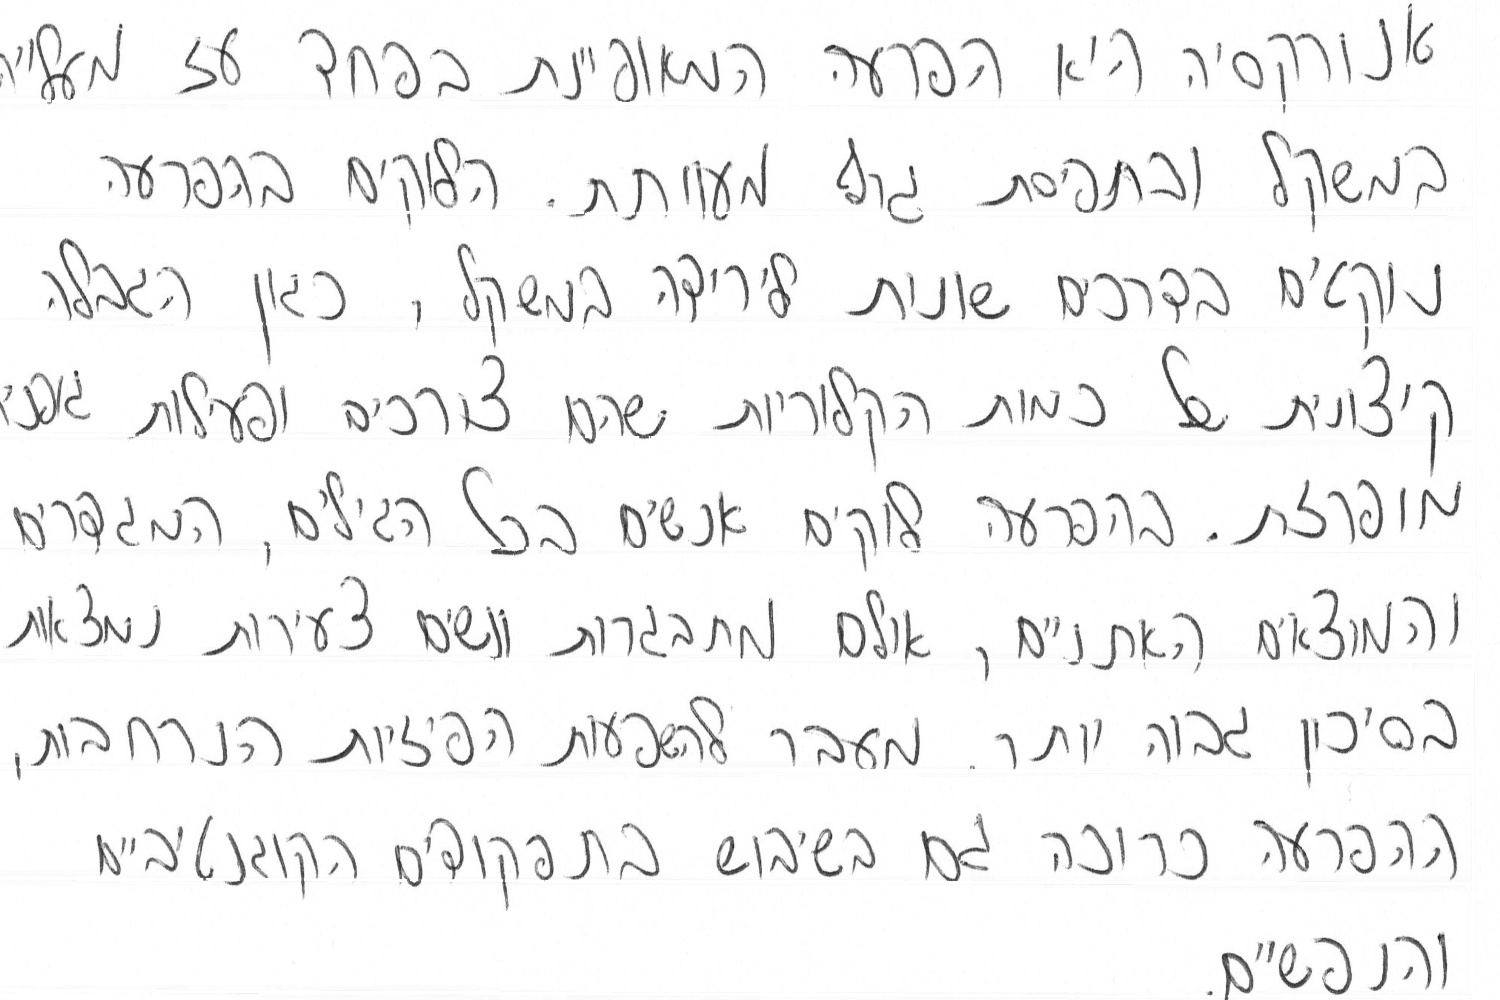 אנורקסיה היא הפרעה המאופיינת בפחד עז מעלייה
במשקל ובתפיסת גוף מעוותת. הלוקים בהפרעה
נוקטים בדרכים שונות לירידה במשקל, כגון הגבלה
קיצונית של כמות הקלוריות שהם צורכים ופעילות גופני
מופרזת. בהפרעה לוקים אנשים בכל הגילים, המגדרים
והמוצאים האתניים, אולם מתבגרות ונשים צעירות נמצאות
בסיכון גבוה יותר. מעבר להשפעות הפיזיות הנרחבות,
ההפרעה כרוכה גם בשיבוש בתפקודים הקוגנטיביים
והנפשיים.